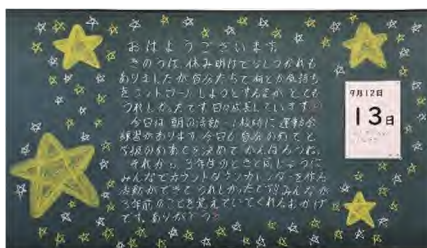 おはようございます。
きのうは、休み明けで少しつかれも
ありましたが自分たちで何とか気持ち
をコントロールしようとする姿がとても
うれしかったです。日々成長しています。
今日は、朝の活動〜1校時に運動会
練習があります。今日も自分のめあてと
学級のめあてを決めてがんばろうね。
それから、3年生のときと同じように
みんなでカウントダウンカレンダーを作る
活動ができてうれしかったです。みんなが
3年前のことを覚えていてくれたおかげ
です。ありがとう。
9月12日
13日